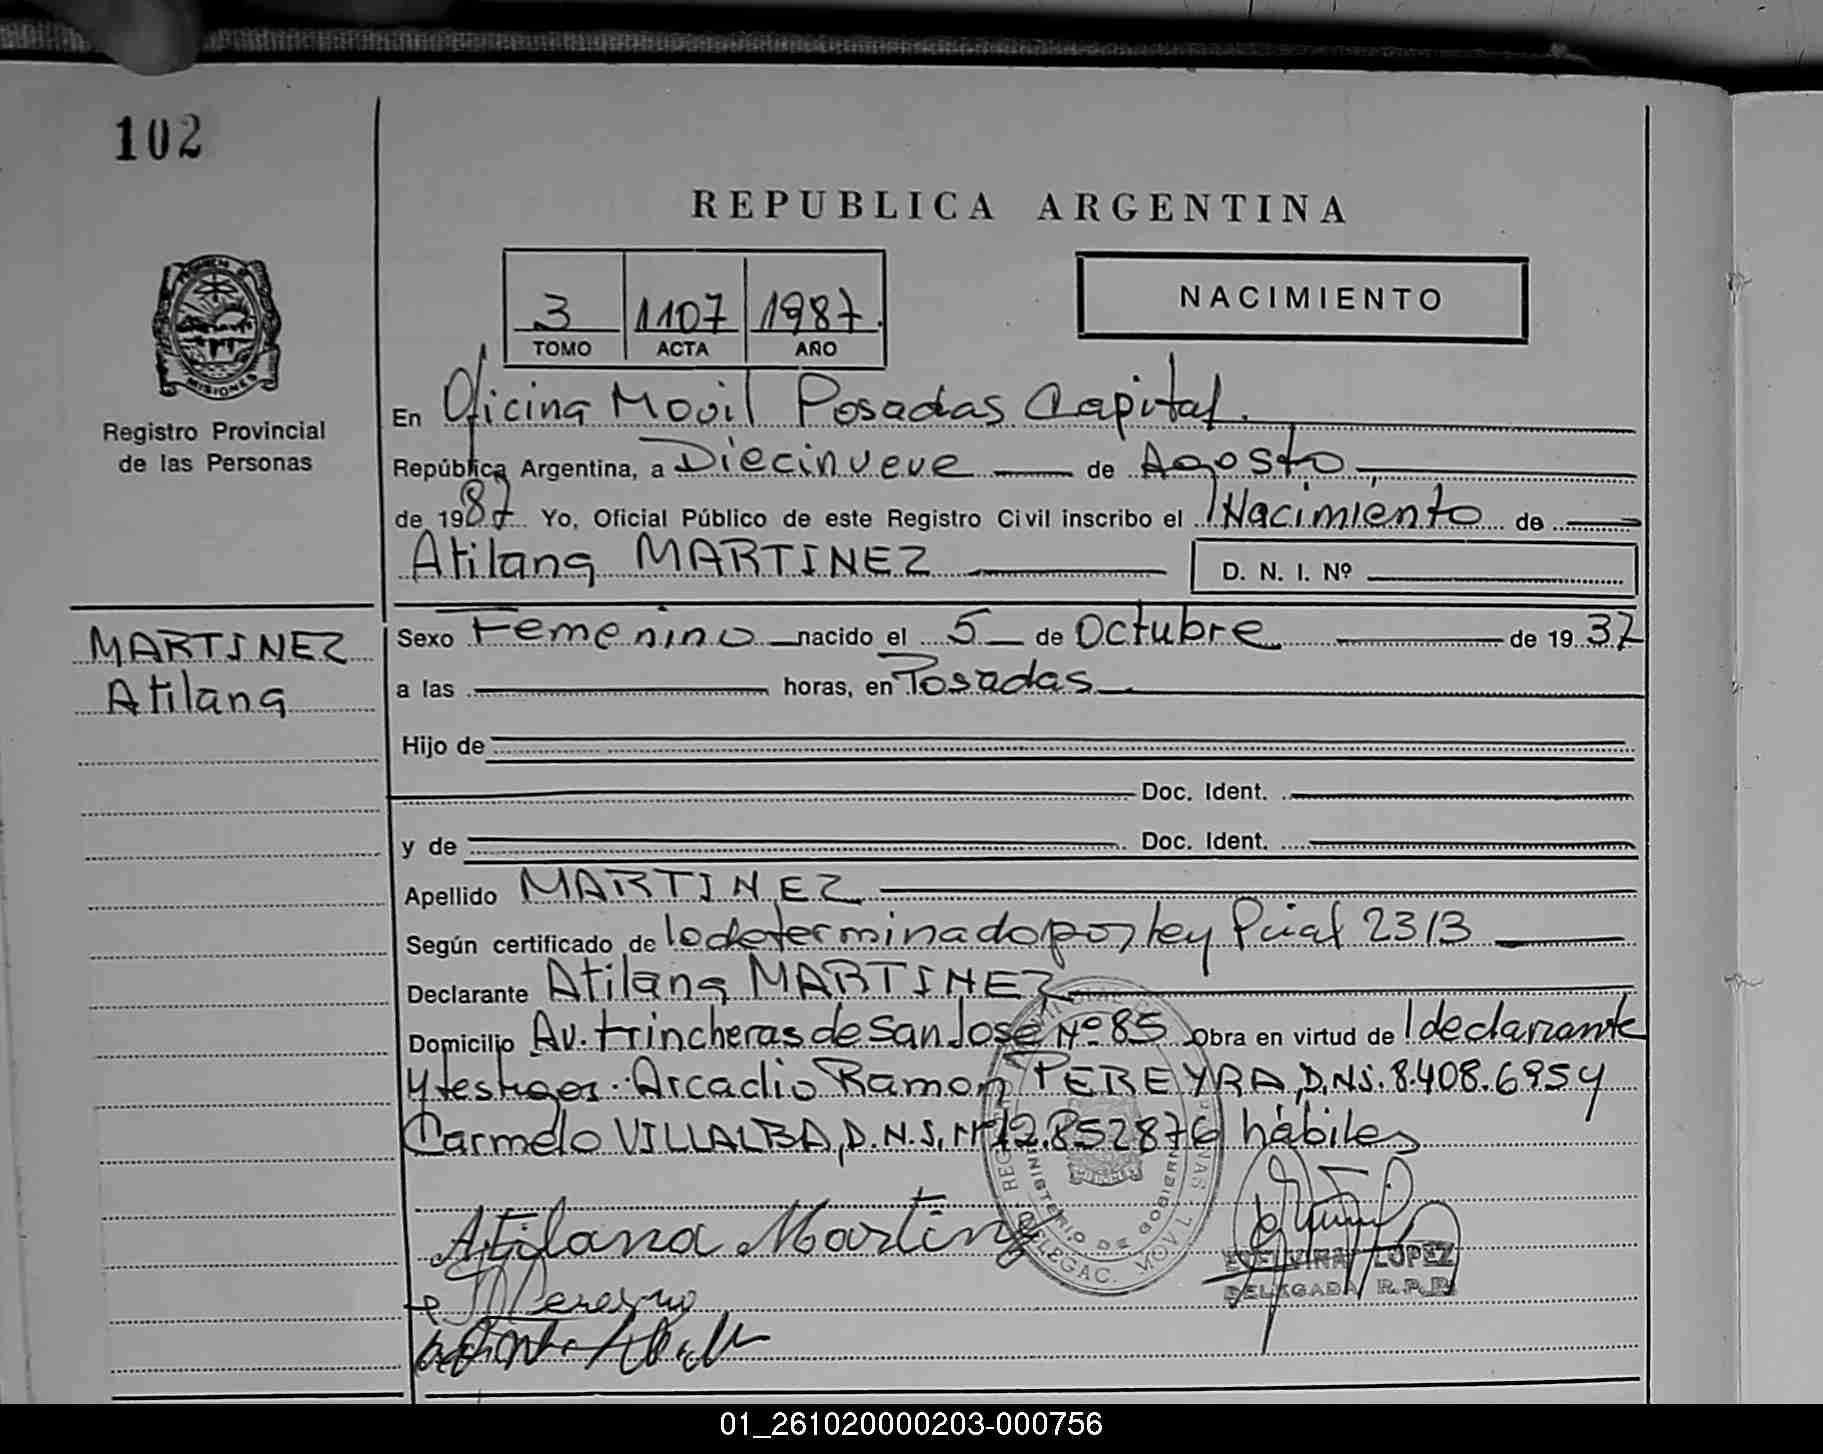 102
REPUBLICA ARGENTINA
3 1107 1987
TOMO ACTA AÑO
NACIMIENTO
MISIONES
Registro Provincial
de las Personas
En Oficina Movil Posadas Capital.
República Argentina, a Diecinueve de Agosto
de 1987 Yo, Oficial Público de este Registro Civil inscribo el Nacimiento de
Atilana MARTINEZ D. N. I. Nº
MARTINEZ
Atilana
Sexo Femenino nacido el 5 de Octubre de 1937
a las horas, en Posadas
Hijo de
Doc. Ident.
y de Doc. Ident.
Apellido MARTINEZ
Según certificado de lo determinado por ley Pcial 2313
Declarante Atilana MARTINEZ
Domicilio Av. trincheras de San José Nº 85 Obra en virtud de l declarante
y testigos. Arcadio Ramon PEREYRA, D.N.I. 8.408.695 y
Carmelo VILLALBA, D.N.I. Nº 12.852876 hábiles
MINISTERIO DE GOBIERNO
DELEGAC. MOVIL
Atilana Martinez
Pereyra
LOPEZ
DELEGADA R.P.P.
01_261020000203-000756